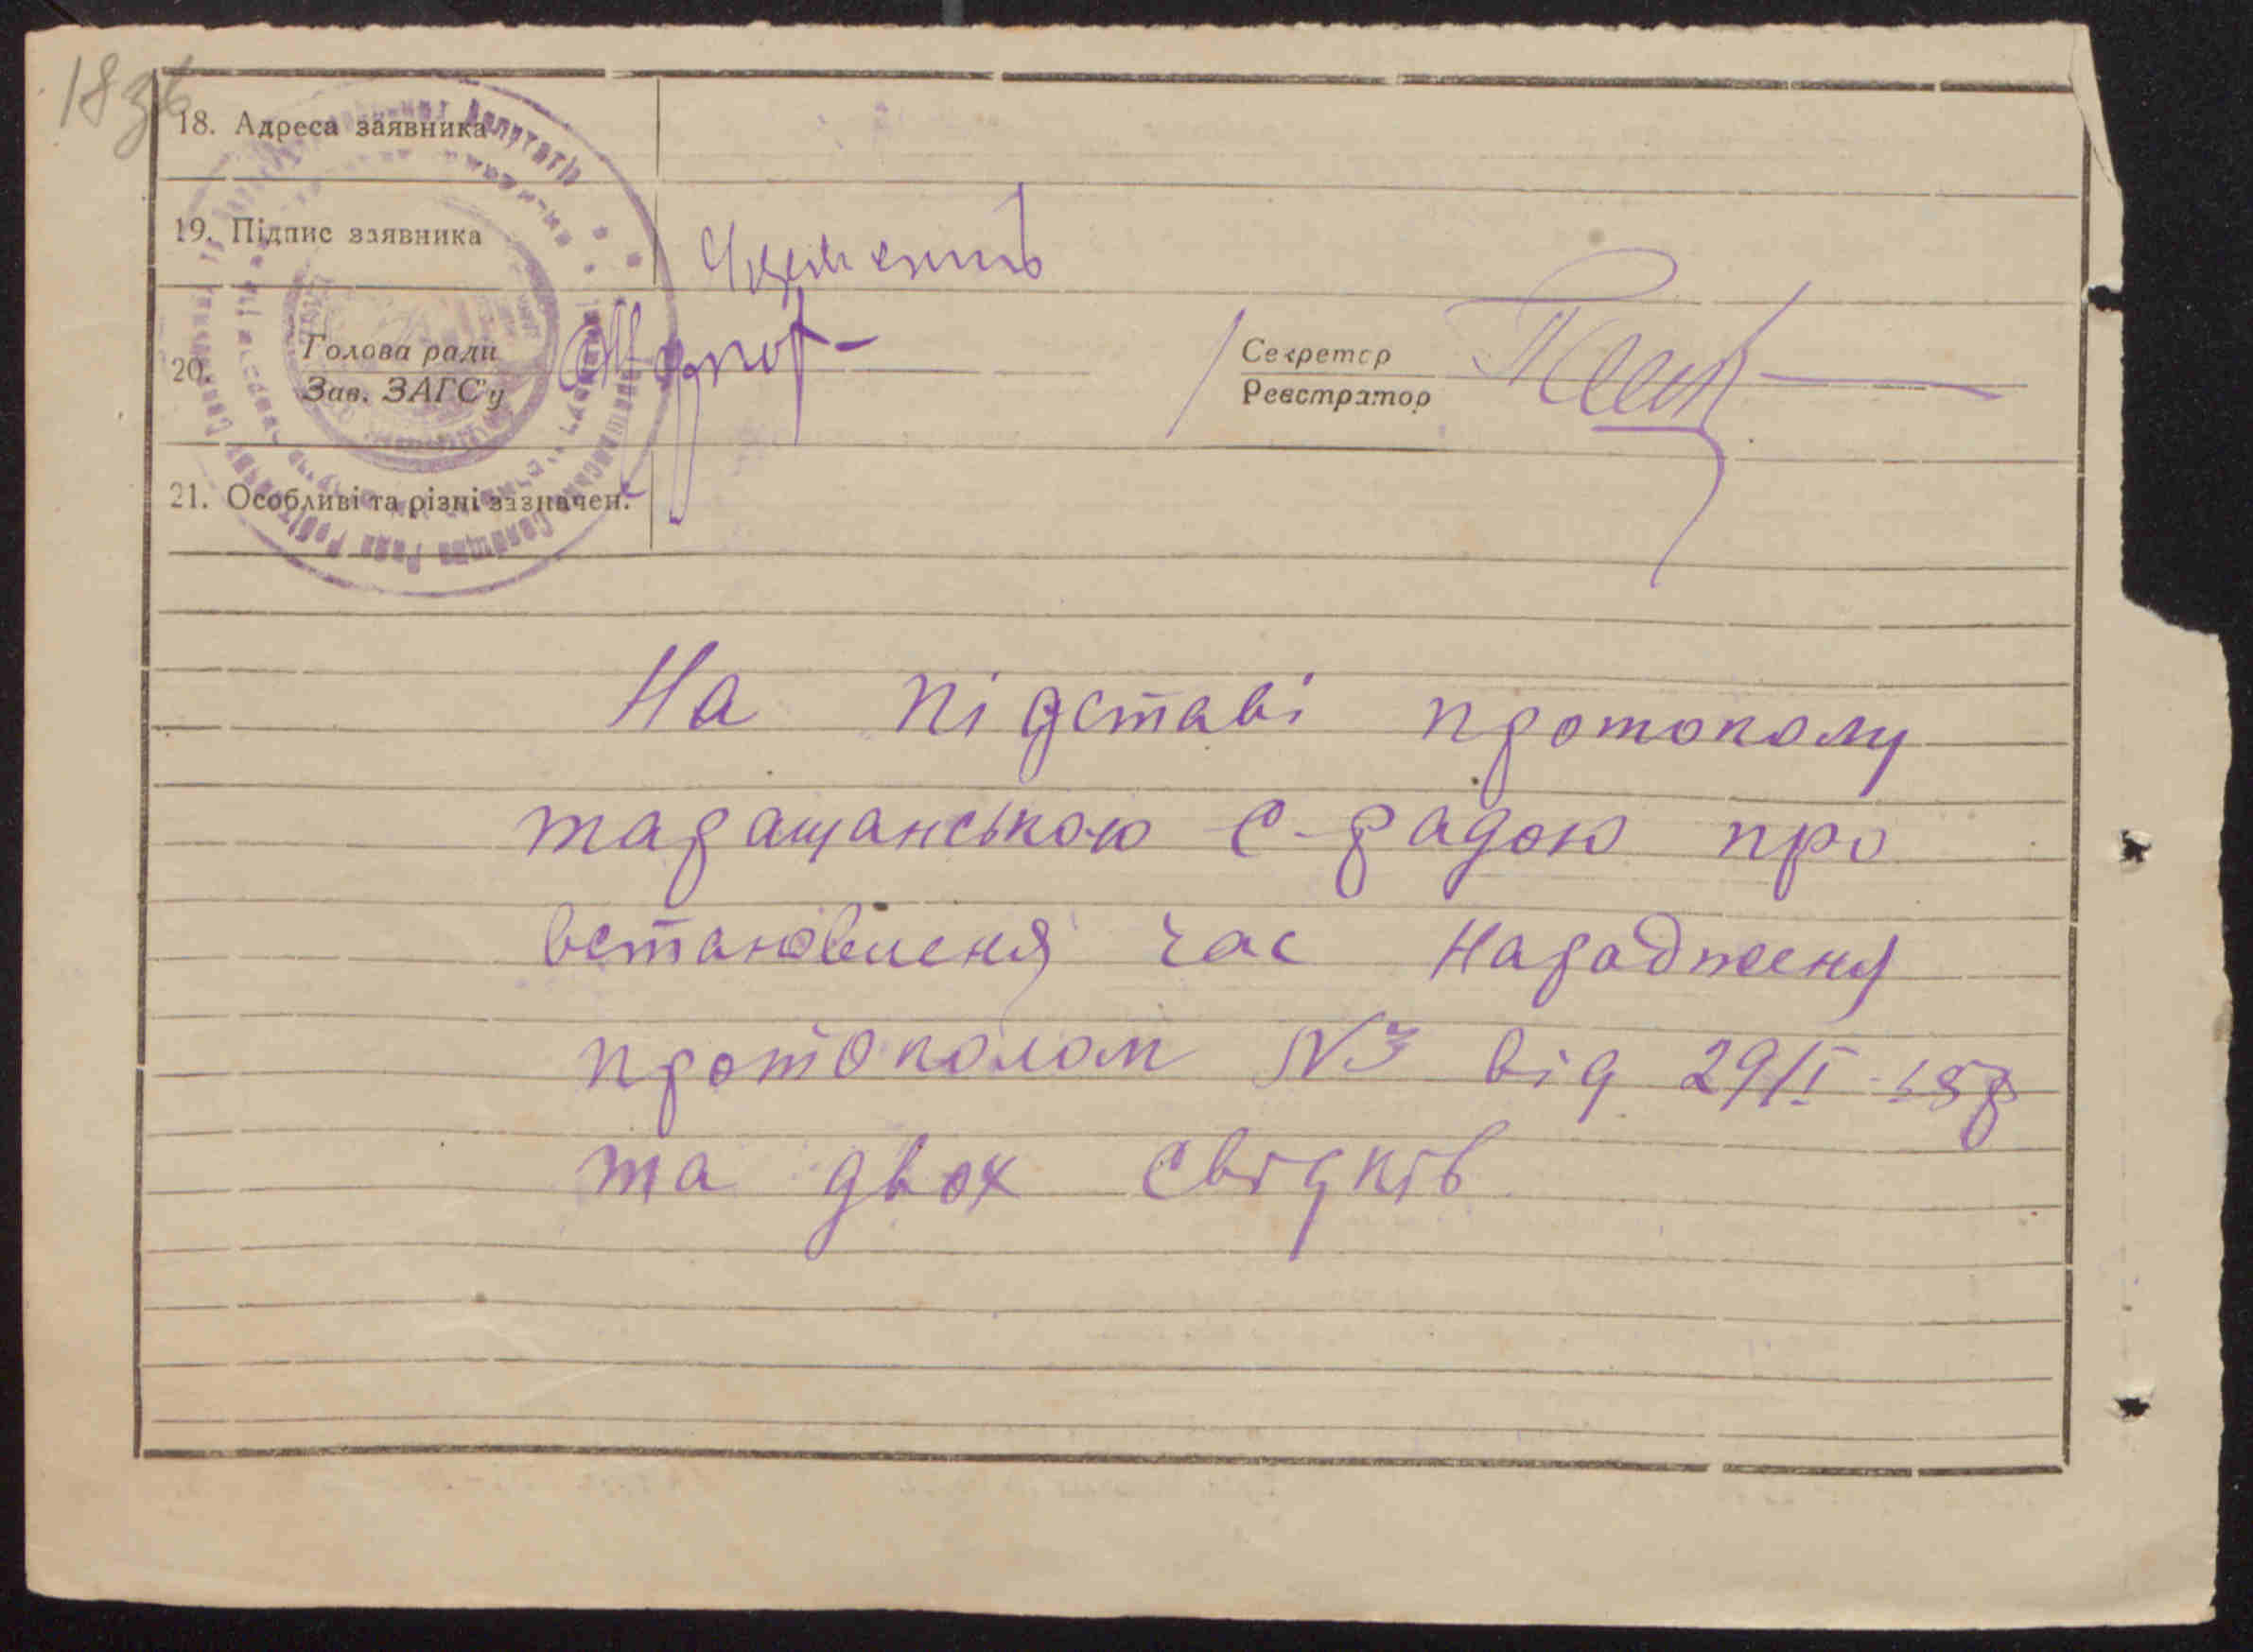 18зв
18. Адреса заявника
19. Підпис заявника
20. Голова ради
Зав. ЗАГС'у
Секретар
Реєстратор
21. Особливі та різні зазначен.
На підставі протоколу
таращанською с-радою про
встановленя час нараджени
протоколом N3 від 29/I
та двох свідків